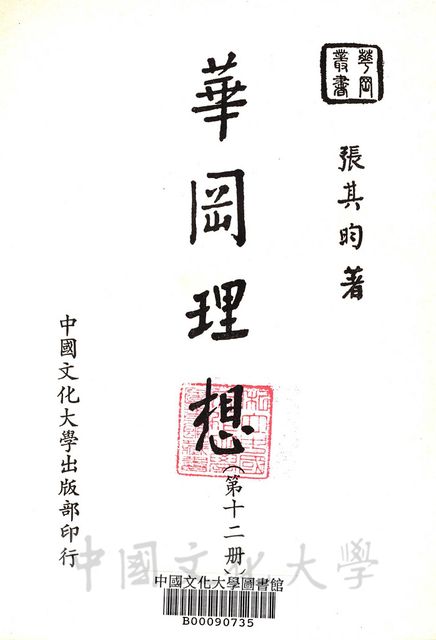 華岡
叢書
張其昀著
華岡理想
(第十二册)
中國文化大學出版部印行
中國文化大學
中國文化大學圖書館
B00090735